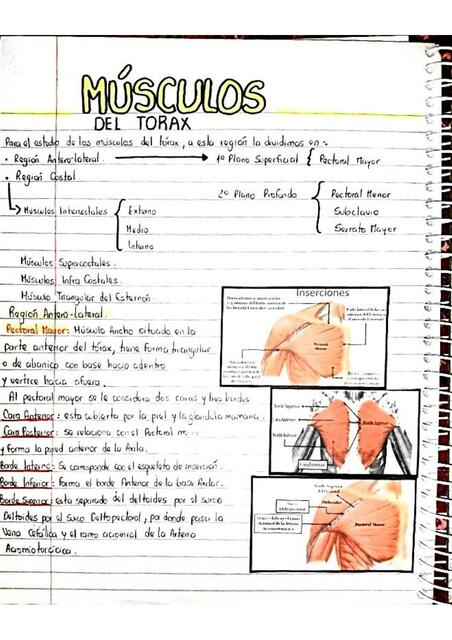 MÚSCULOS
DEL TORAX
Para el estudio de los músculos del tórax, a esta región la dividimos en:
• Región Antero-lateral. 1º Plano Superficial { Pectoral Mayor
• Región Costal.
2º Plano Profundo { Pectoral Menor
Subclavio
Serrato Mayor
Músculos Intercostales { Externo
Medio
Interno
Músculos Supracostales.
Músculos Infra Costales.
Músculo Triangular del Esternón.
Región Antero-Lateral.
Pectoral Mayor: Músculo Ancho situado en la
parte anterior del tórax, tiene forma triangular
o de abanico con base hacia adentro
y vertice hacia afuera.
Al pectoral mayor se le considera dos caras y tres bordes
Cara Anterior: esta cubierta por la piel y la glandula mamaria.
Cara Posterior: se relaciona con el Pectoral
y forma la pared anterior de la Axila.
Borde Interno: Se corresponde con el esqueleto de inserción.
Borde Inferior: forma el borde Anterior de la base Axilar.
Borde Superior: esta separado del deltoides por el surco
Deltoides por el Surco Deltopectoral, por donde pasa la
Vena Cefálica y el ramo acromial de la Arteria
Acromiotorácica.
Inserciones
Pectoral Mayor
Borde Superior
Borde Superior
Deltoides
Pectoral Mayor